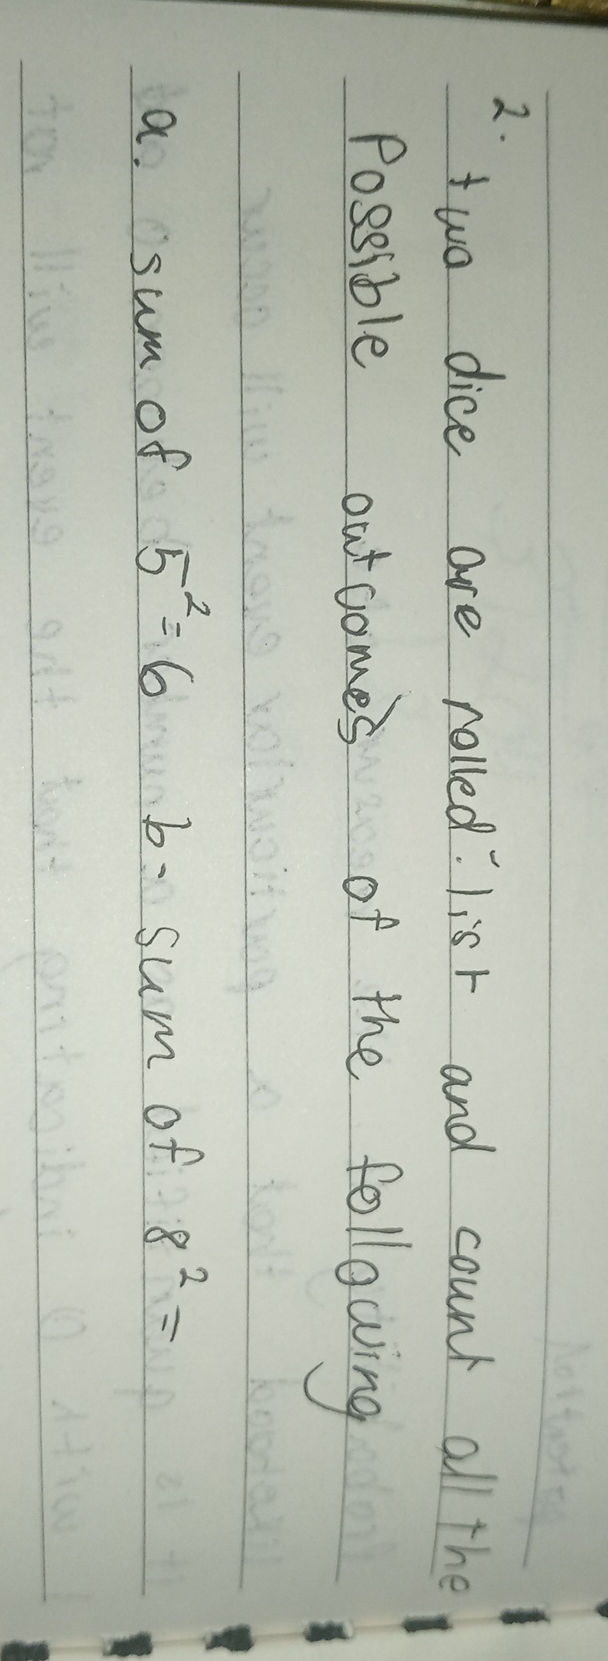 2. two dice are rolled. list and count all the
Possible outcomes of the following
a. sum of 5² = 6 b - sum of 8² =